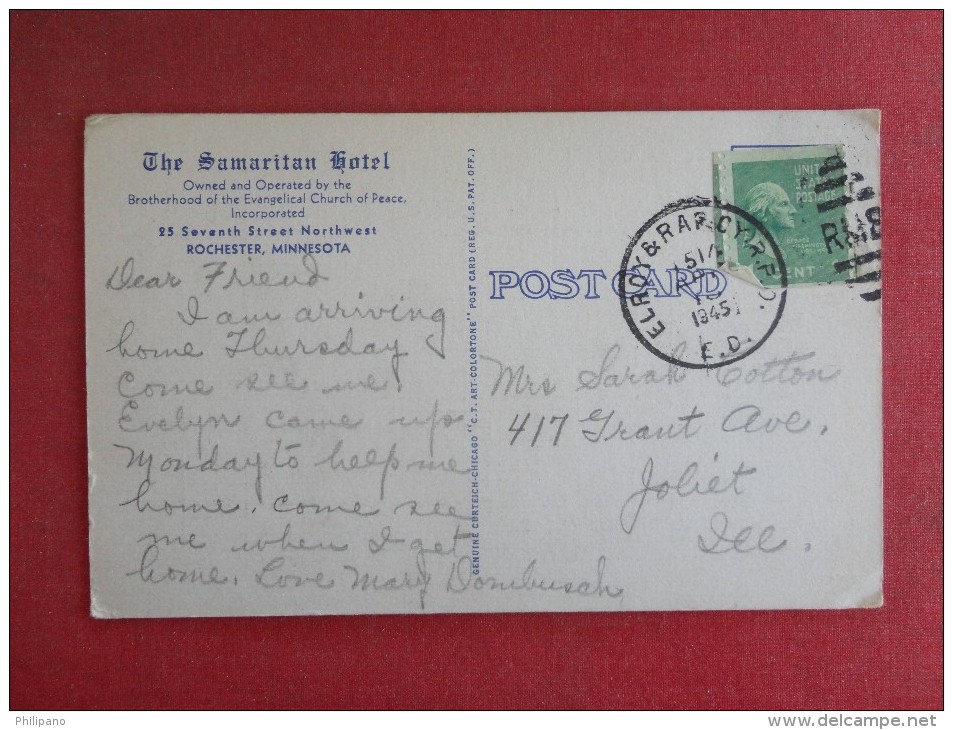 The Samaritan Hotel
Owned and Operated by the
Brotherhood of the Evangelical Church of Peace,
Incorporated
25 Seventh Street Northwest
ROCHESTER, MINNESOTA
Dear Friend
I am arriving
home Thursday
Come see me.
Evelyn came up
Monday to help me
home. Come see
me when I get
home. Love Mary Dornbusch
GENUINE CURTEICH-CHICAGO "C.T. ART-COLORTONE" POST CARD (REG. U.S. PAT. OFF.)
POST CARD
ELROY & RAP. CY. R.P.O.
1945
E.D.
UNITED
STATES
POSTAGE
Mrs Sarah Cotton
417 Grant Ave.
Joliet
Ill.
Philipano
www.delcampe.net